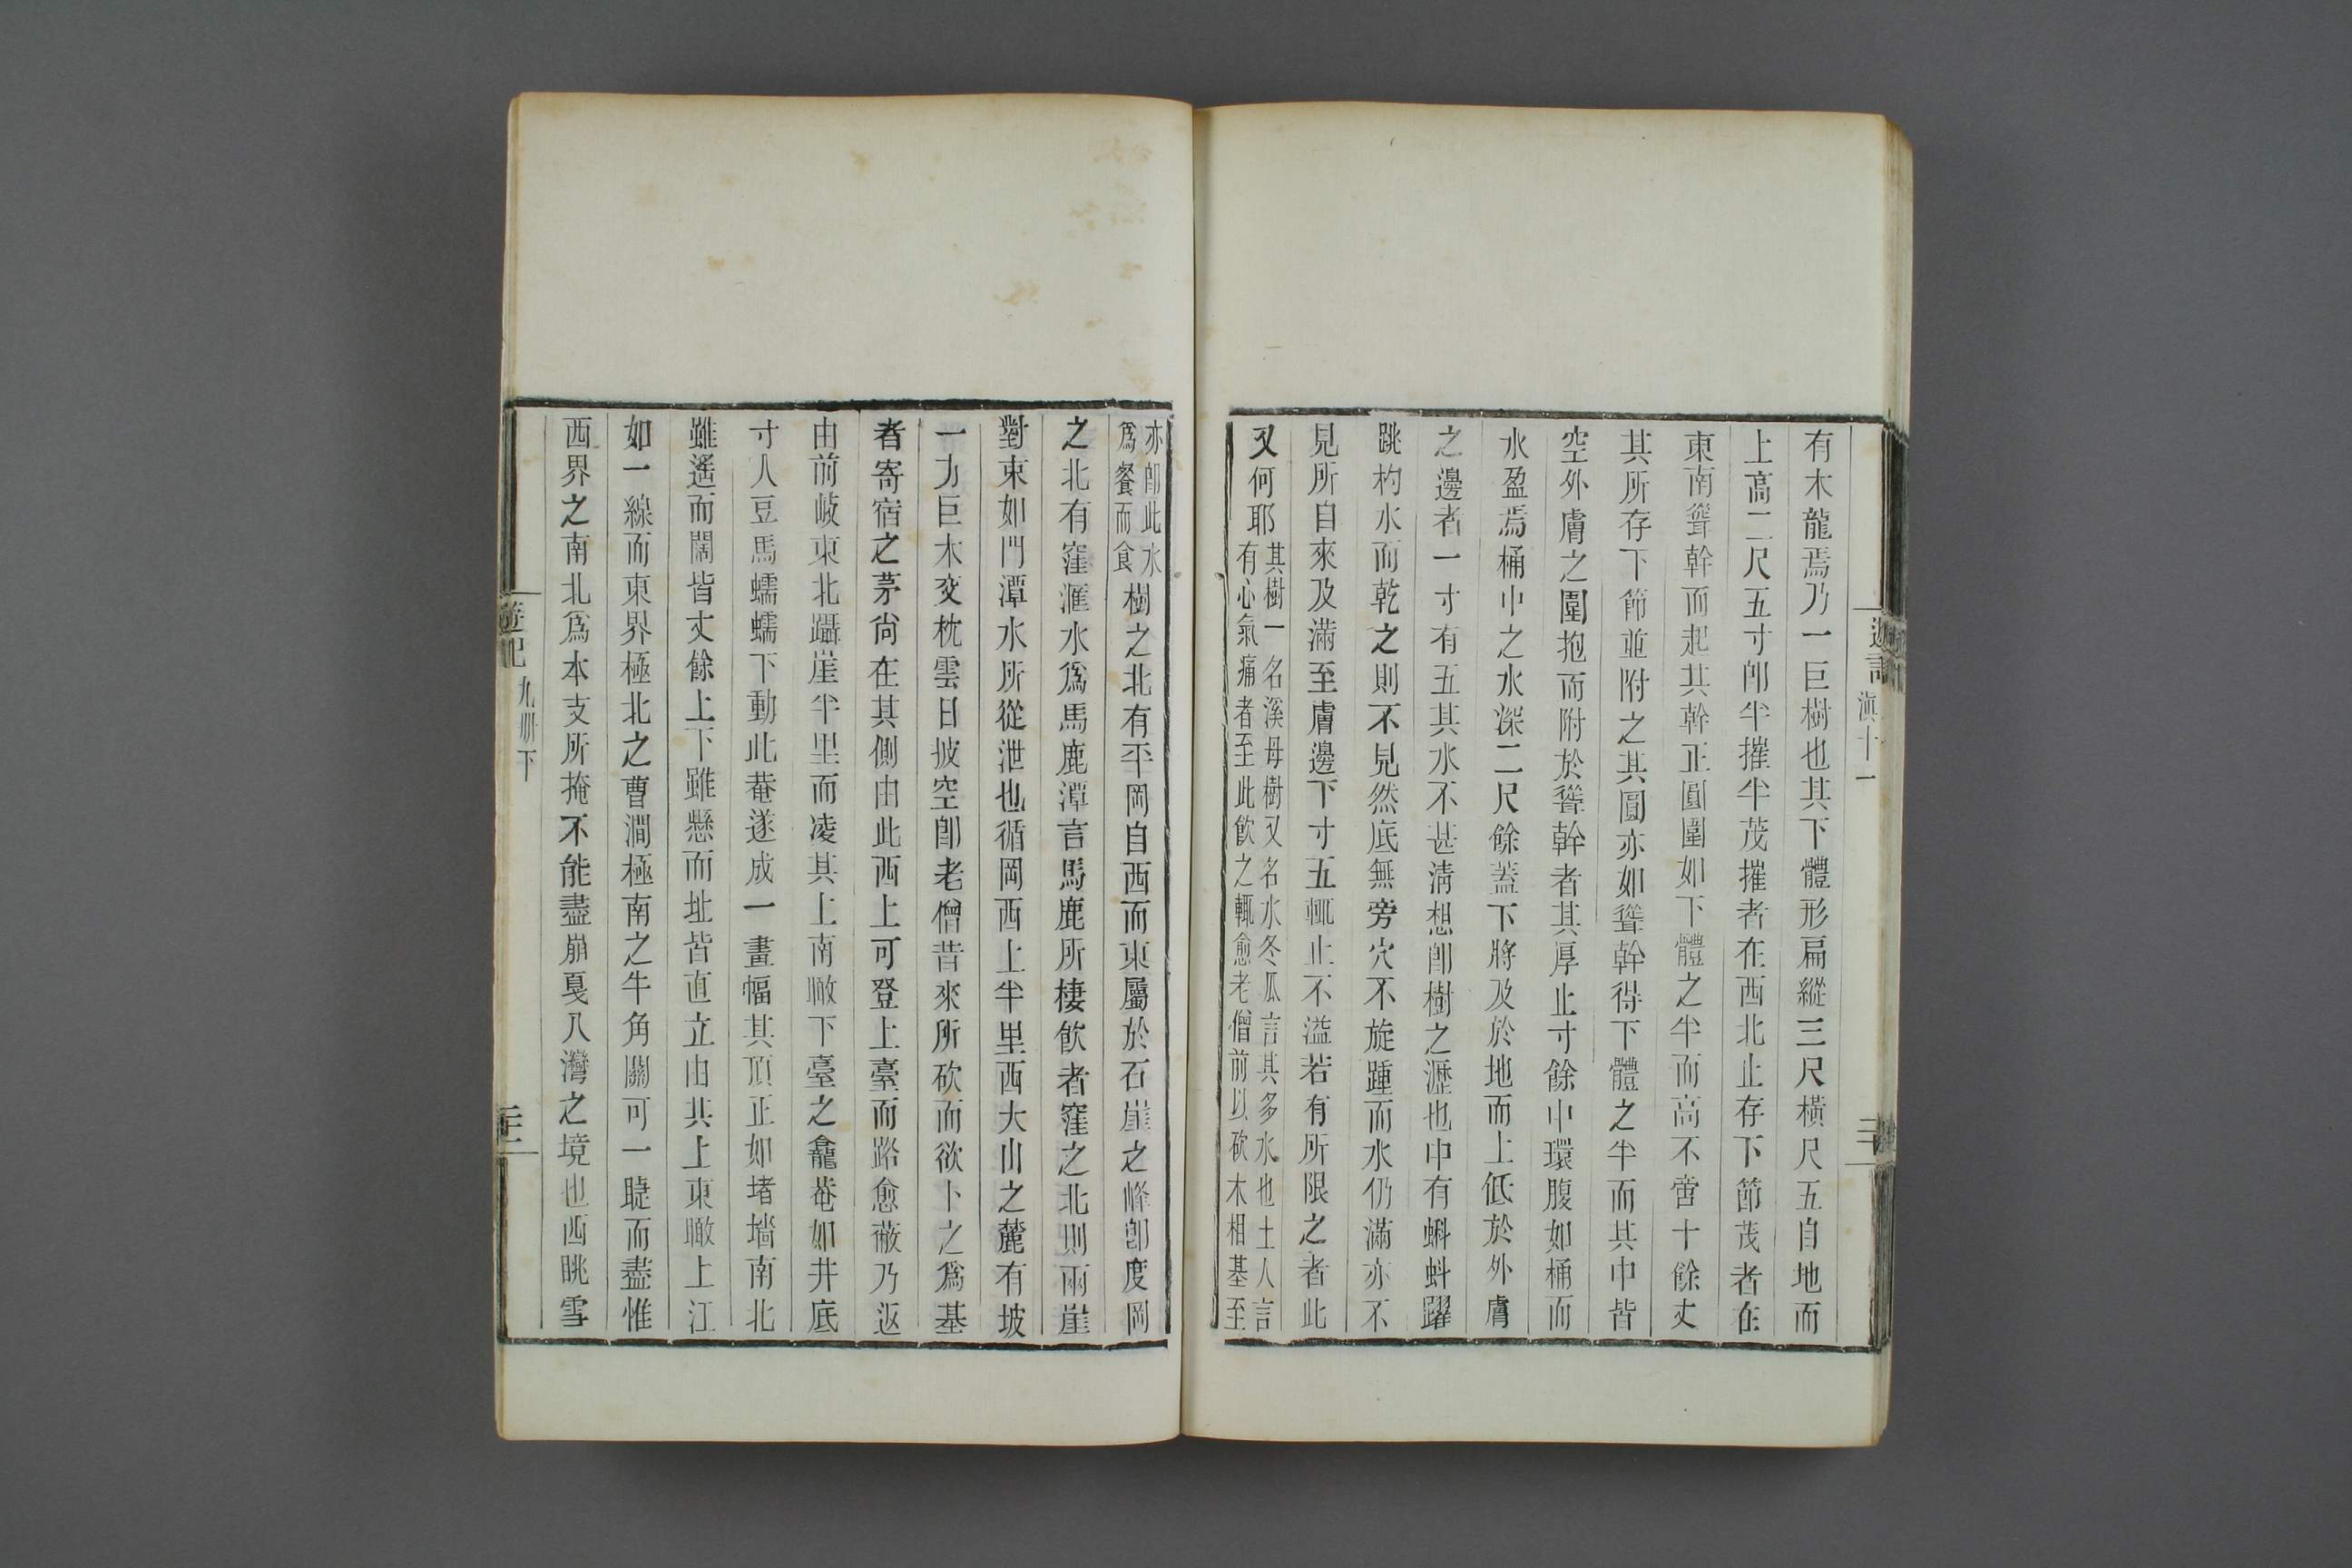 滇十一
有木龍焉乃一巨樹也其下體形扁縱三尺橫尺五自地而
上高二尺五寸卽半摧半茂摧者在西北止存下節茂者在
東南聳幹而起其幹正圓圍如下體之半而高不啻十餘丈
其所存下節並附之其圓亦如聳幹得下體之半而其中皆
空外膚之圍抱而附於聳幹者其厚止寸餘中環腹如桶而
水盈焉桶中之水深二尺餘蓋下將及於地而上低於外膚
之邊者一寸有五其水不甚清想卽樹之瀝也中有蝌蚪躍
跳杓水而乾之則不見然底無旁穴不旋踵而水仍滿亦不
見所自來及滿至膚邊下寸五輒止不溢若有所限之者此
又何耶
其樹一名溪母樹又名水冬瓜言其多水也土人言
有心氣痛者至此飮之輒愈老僧前以砍木相基至
亦卽此水
爲餐而食
樹之北有平岡自西而東屬於石崖之峰卽度岡
之北有窪滙水爲馬鹿潭言馬鹿所棲飮者窪之北則兩崖
對東如門潭水所從泄也循岡西上半里西大山之麓有坡
一方巨木交枕雲日披空卽老僧昔來所砍而欲卜之爲基
者寄宿之茅尙在其側由此西上可登上臺而路愈蔽乃返
由前岐東北躡崖半里而凌其上南瞰下臺之龕菴如井底
寸人豆馬蠕蠕下動此菴遂成一畫幅其頂正如堵墻南北
雖遙而闊皆丈餘上下雖懸而址皆直立由其上東瞰上江
如一線而東界極北之曹澗極南之牛角關可一睫而盡惟
西界之南北爲本支所掩不能盡崩戛八灣之境也西眺雪
遊記
九册下